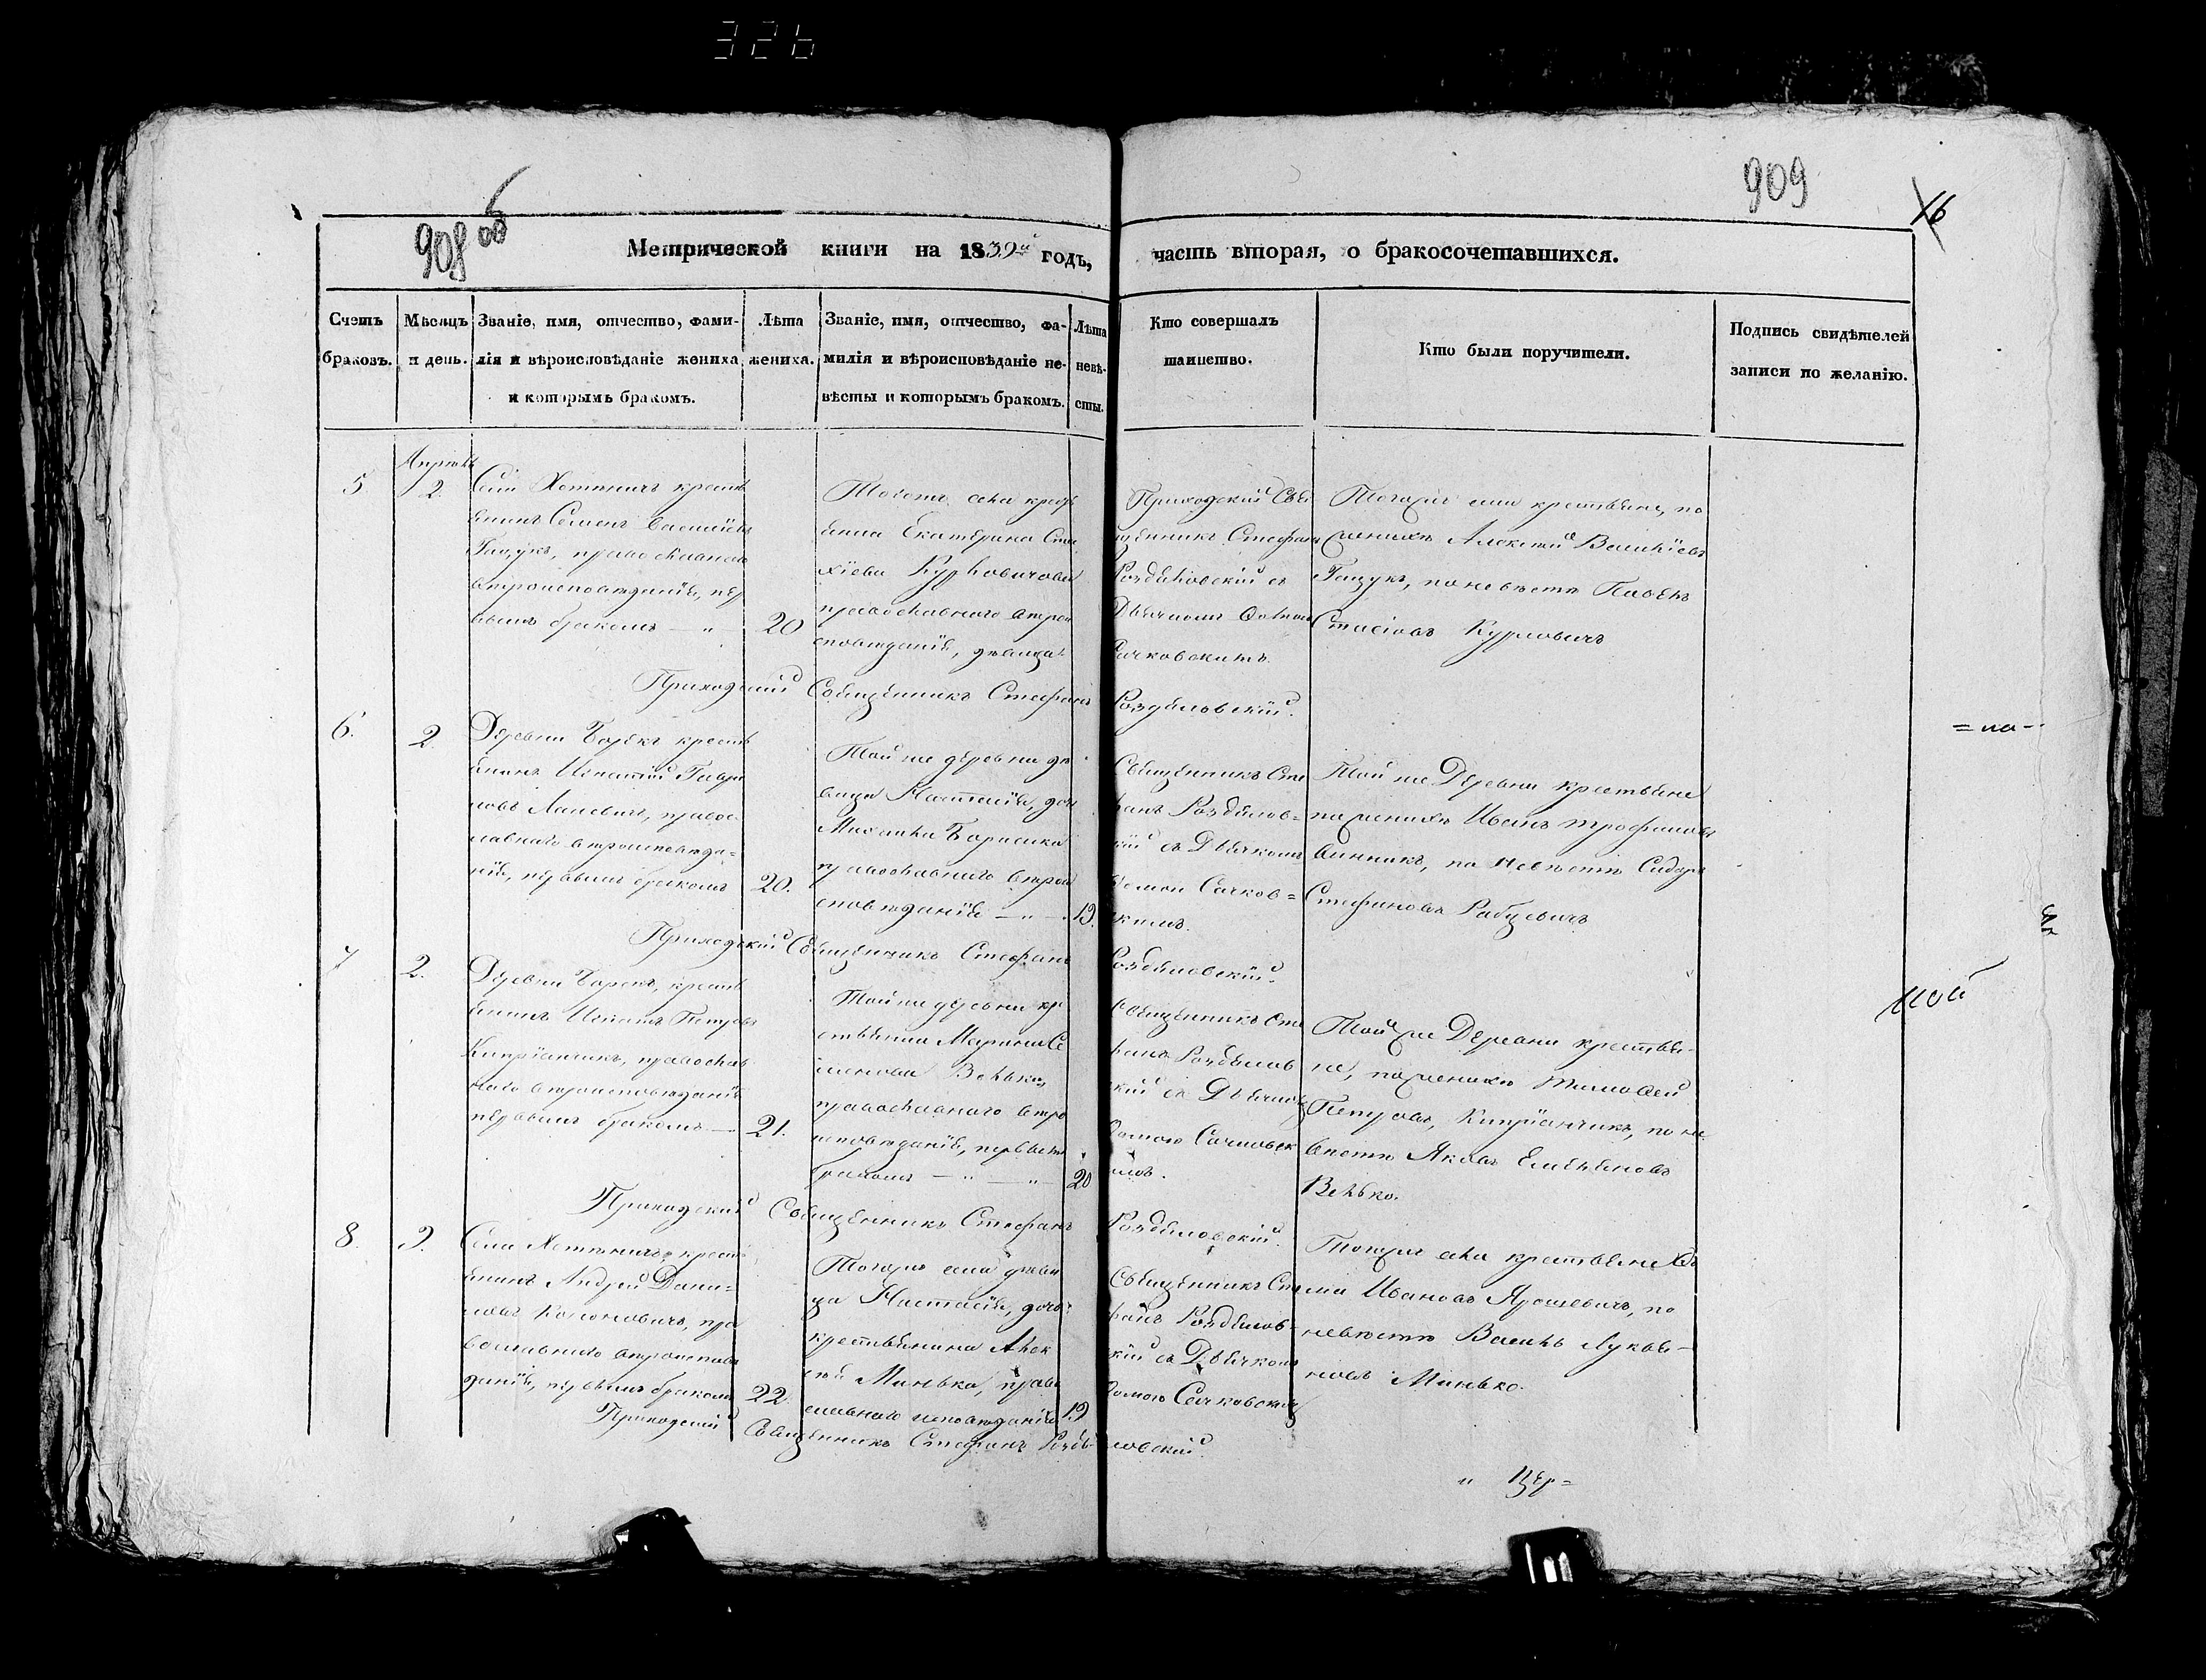 326
908 об
909
16
Метрической книги на 1839й годъ, часть вторая, о бракосочетавшихся.
Счетъ браковъ.
Мѣсяцъ и день.
Званіе, имя, отчество, фами-
лія и вѣроисповѣданіе жениха
и которымъ бракомъ.
Лѣта
жениха.
Званіе, имя, отчество, фа-
милія и вѣроисповѣданіе не-
вѣсты и которымъ бракомъ.
Лѣта
невѣ-
сты.
Кто совершалъ
таинство.
Кто были поручители.
Подпись свидѣтелей
записи по желанію.
5.
Апрѣль
2.
Села Хотыничъ кресть
янинъ Семенъ Василіевъ
Гацукъ, православнаго
вѣроисповѣданія, пер
вымъ бракомъ — " —
20
села кресть
янка Екатерина Ста
хіева Курловичова
православнаго вѣрои
сповѣданія,
Приходскій Свя
щенникъ Стефанъ
Роздяловскій съ
Дьячкомъ
Сачковскимъ.
Тогожъ села крестьяне, по
женихѣ Алексѣй Василіевъ
Гацукъ, по невѣстѣ Павелъ
Стасіовъ Курловичъ
Приходскій Священникъ Стефанъ Роздяловскій.
6.
2.
Деревни Борекъ кресть
янинъ Игнатій Гаври
ловъ Лапевичъ, правос
лавнаго вѣроисповѣда=
нія, первымъ бракомъ
20.
Той же деревни дѣ
вица Настасія, дочь
Михаила Борисика
православнаго вѣрои
сповѣданія — " —
19.
Священникъ Сте
фанъ Роздялов=
кій съ Дьячкомъ
Сачков=
скимъ.
Той же Деревни крестьяне
по женихѣ Иванъ Трофимовъ
Винникъ, по невѣстѣ Сидоръ
Стефановъ Рабцевичъ
Приходскій Священникъ Стефанъ Роздяловскій.
7
2.
Деревни Борекъ, кресть
янинъ Игнатъ Петровъ
Кипріянчикъ, православ
наго вѣроисповѣданія
первымъ бракомъ —
21.
Той же деревни кре
стьянка Марина Се
менова Велько,
православнаго вѣро
исповѣданія, первымъ
бракомъ — " — " —
20
Священникъ Сте
фанъ Роздялов
скій съ Дьячкомъ
Фомою Сачковск
имъ.
Той же Деревни крестья-
не, по женихѣ Тимофей
Петровъ, Кипріянчикъ, по не
вѣстѣ Яковъ Емельяновъ
Велько.
Приходскій Священникъ Стефанъ Роздяловскій.
8.
9.
Села Хотыничъ кресть
янинъ Андрей Дани=
ловъ Колоновичъ, пра
вославнаго вѣроисповѣ
данія, первымъ бракомъ
22.
Тогожъ села дѣви
ца Настасія, дочь
крестьянина Алек
сѣя Минько, право
славнаго исповѣданія
19
Священникъ Сте
фанъ Роздялов-
скій съ Дьячкомъ
Фомою Сачковским
Тогожъ села крестьяне
Ивановъ Ярошевичъ, по
невѣстѣ Василь Лукья-
новъ Минько.
Приходскій Священникъ Стефанъ Роздяловскій.
=на-
ной